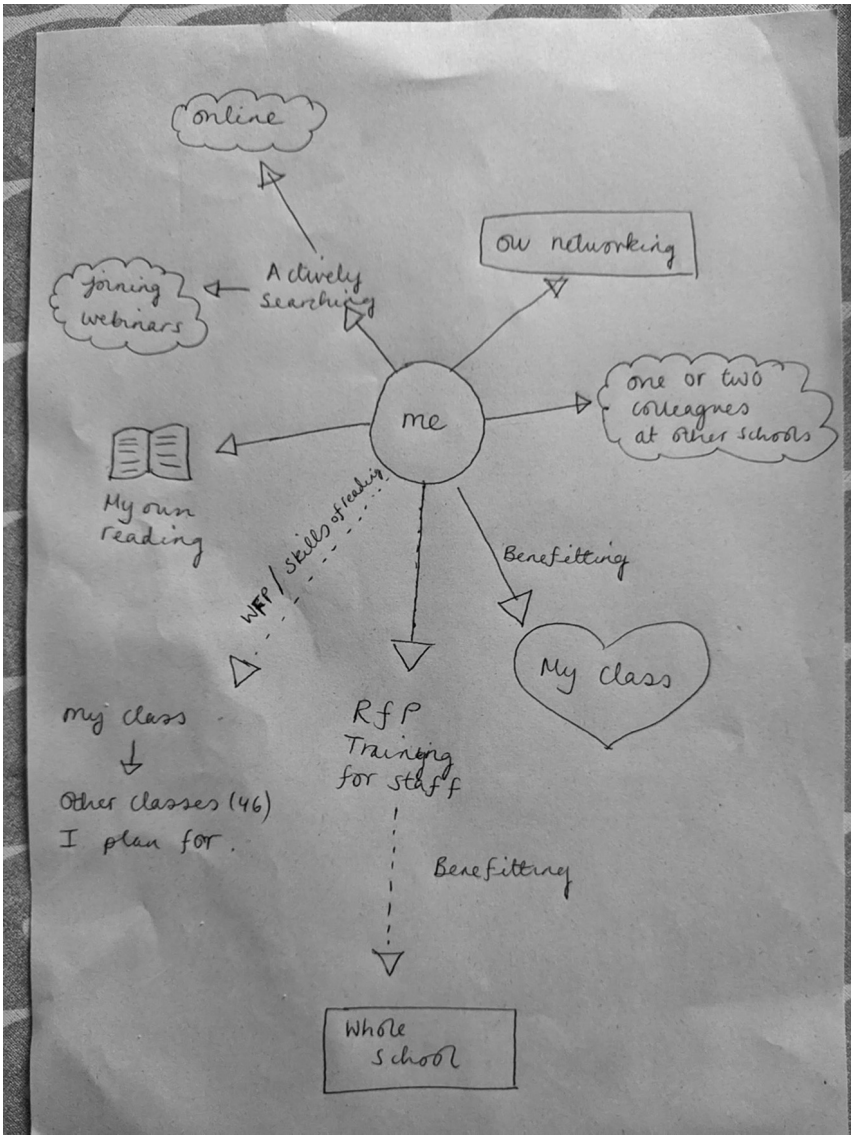 online
ou networking
Actively
searching
joining
webinars
one or two
colleagues
at other schools
me
My own
reading
/ Skills of reading
Benefitting
My class
my class
Other classes (46)
I plan for.
RfP
Training
for staff
Benefitting
Whole
School